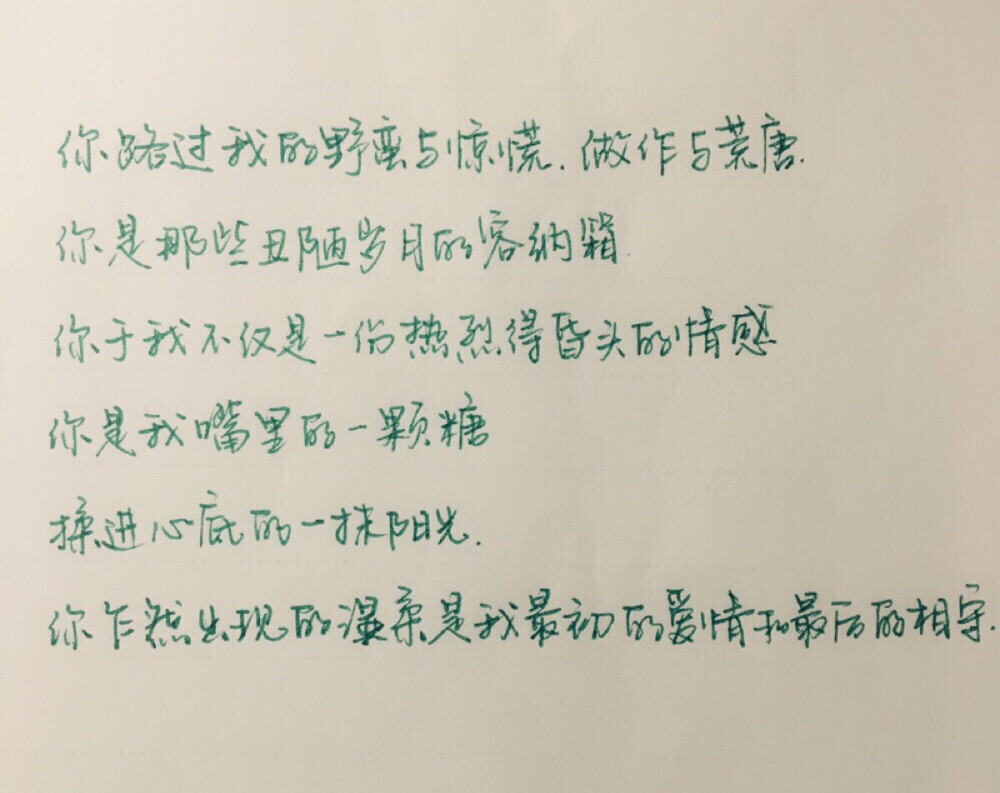 你路过我的野蛮与惊慌.做作与荒唐.
你是那些丑陋岁月的容纳箱.
你于我不仅是一份热烈得昏头的情感
你是我嘴里的一颗糖
揉进心底的一抹阳光.
你乍然出现的温柔是我最初的爱情和最后的相守.